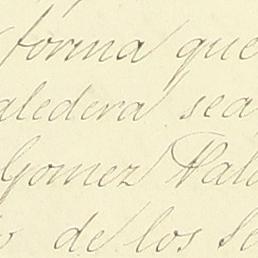 forma que
aledera sea
Gomez Val
o de los Se